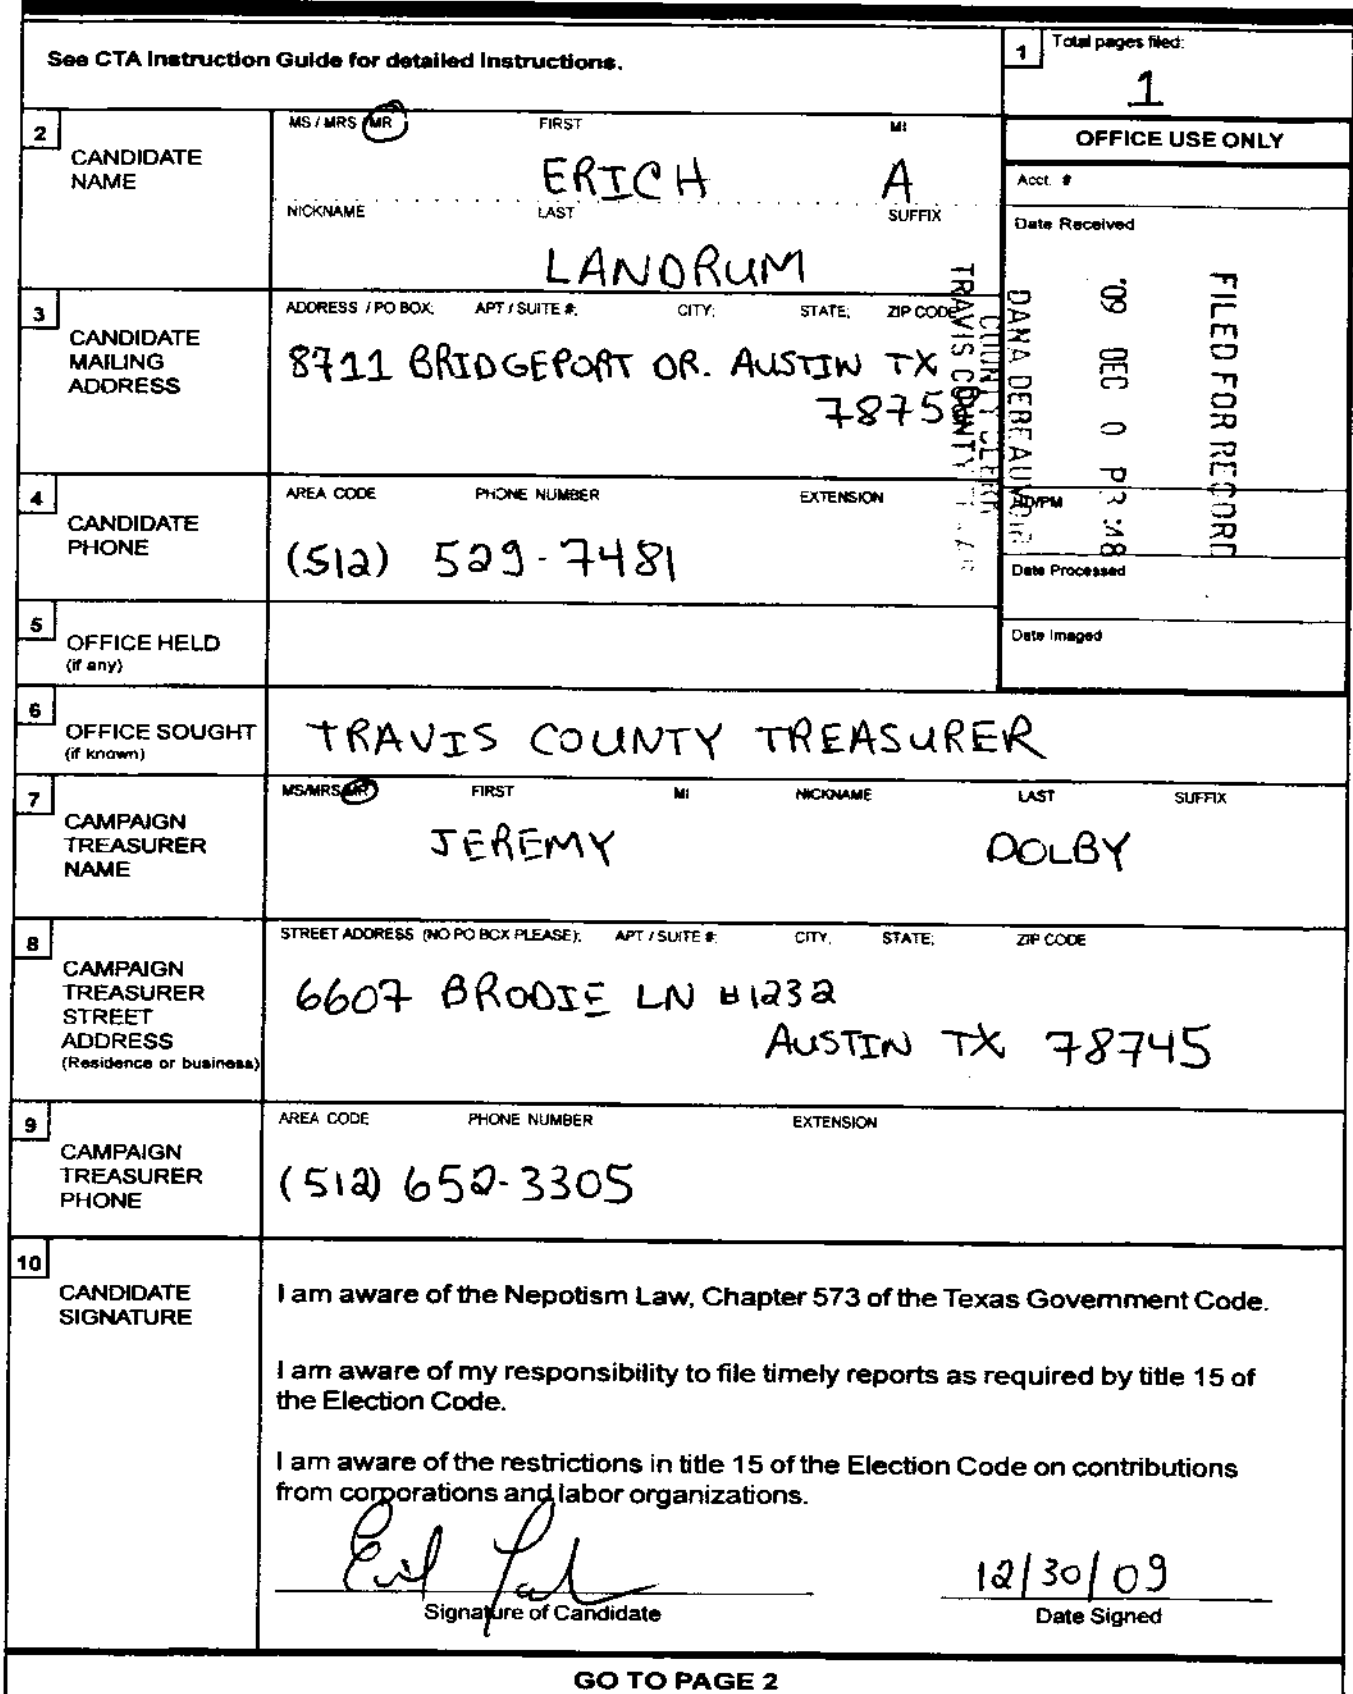 See CTA Instruction Guide for detailed Instructions.
1 Total pages filed:
1
2 CANDIDATE NAME
MS / MRS / MR FIRST MI
ERICH A
NICKNAME LAST SUFFIX
LANDRUM
OFFICE USE ONLY
Acct. #
Date Received
FILED FOR RECORD
'09 DEC
DANA DEBEAUVOIR
COUNTY CLERK
TRAVIS COUNTY
HD/PM
Date Processed
Date Imaged
3 CANDIDATE MAILING ADDRESS
ADDRESS / PO BOX; APT / SUITE #; CITY; STATE; ZIP CODE
8711 BRIDGEPORT DR. AUSTIN TX
4 CANDIDATE PHONE
AREA CODE PHONE NUMBER EXTENSION
(512) 529-7481
5 OFFICE HELD
(if any)
6 OFFICE SOUGHT
(if known)
TRAVIS COUNTY TREASURER
7 CAMPAIGN TREASURER NAME
MS/MRS/MR FIRST MI NICKNAME LAST SUFFIX
JEREMY DOLBY
8 CAMPAIGN TREASURER STREET ADDRESS
(Residence or business)
STREET ADDRESS (NO PO BOX PLEASE); APT / SUITE #; CITY; STATE; ZIP CODE
6607 BRODIE LN #1232
AUSTIN TX 78745
9 CAMPAIGN TREASURER PHONE
AREA CODE PHONE NUMBER EXTENSION
(512) 652-3305
10 CANDIDATE SIGNATURE
I am aware of the Nepotism Law, Chapter 573 of the Texas Government Code.
I am aware of my responsibility to file timely reports as required by title 15 of
the Election Code.
I am aware of the restrictions in title 15 of the Election Code on contributions
from corporations and labor organizations.
12/30/09
Signature of Candidate Date Signed
GO TO PAGE 2